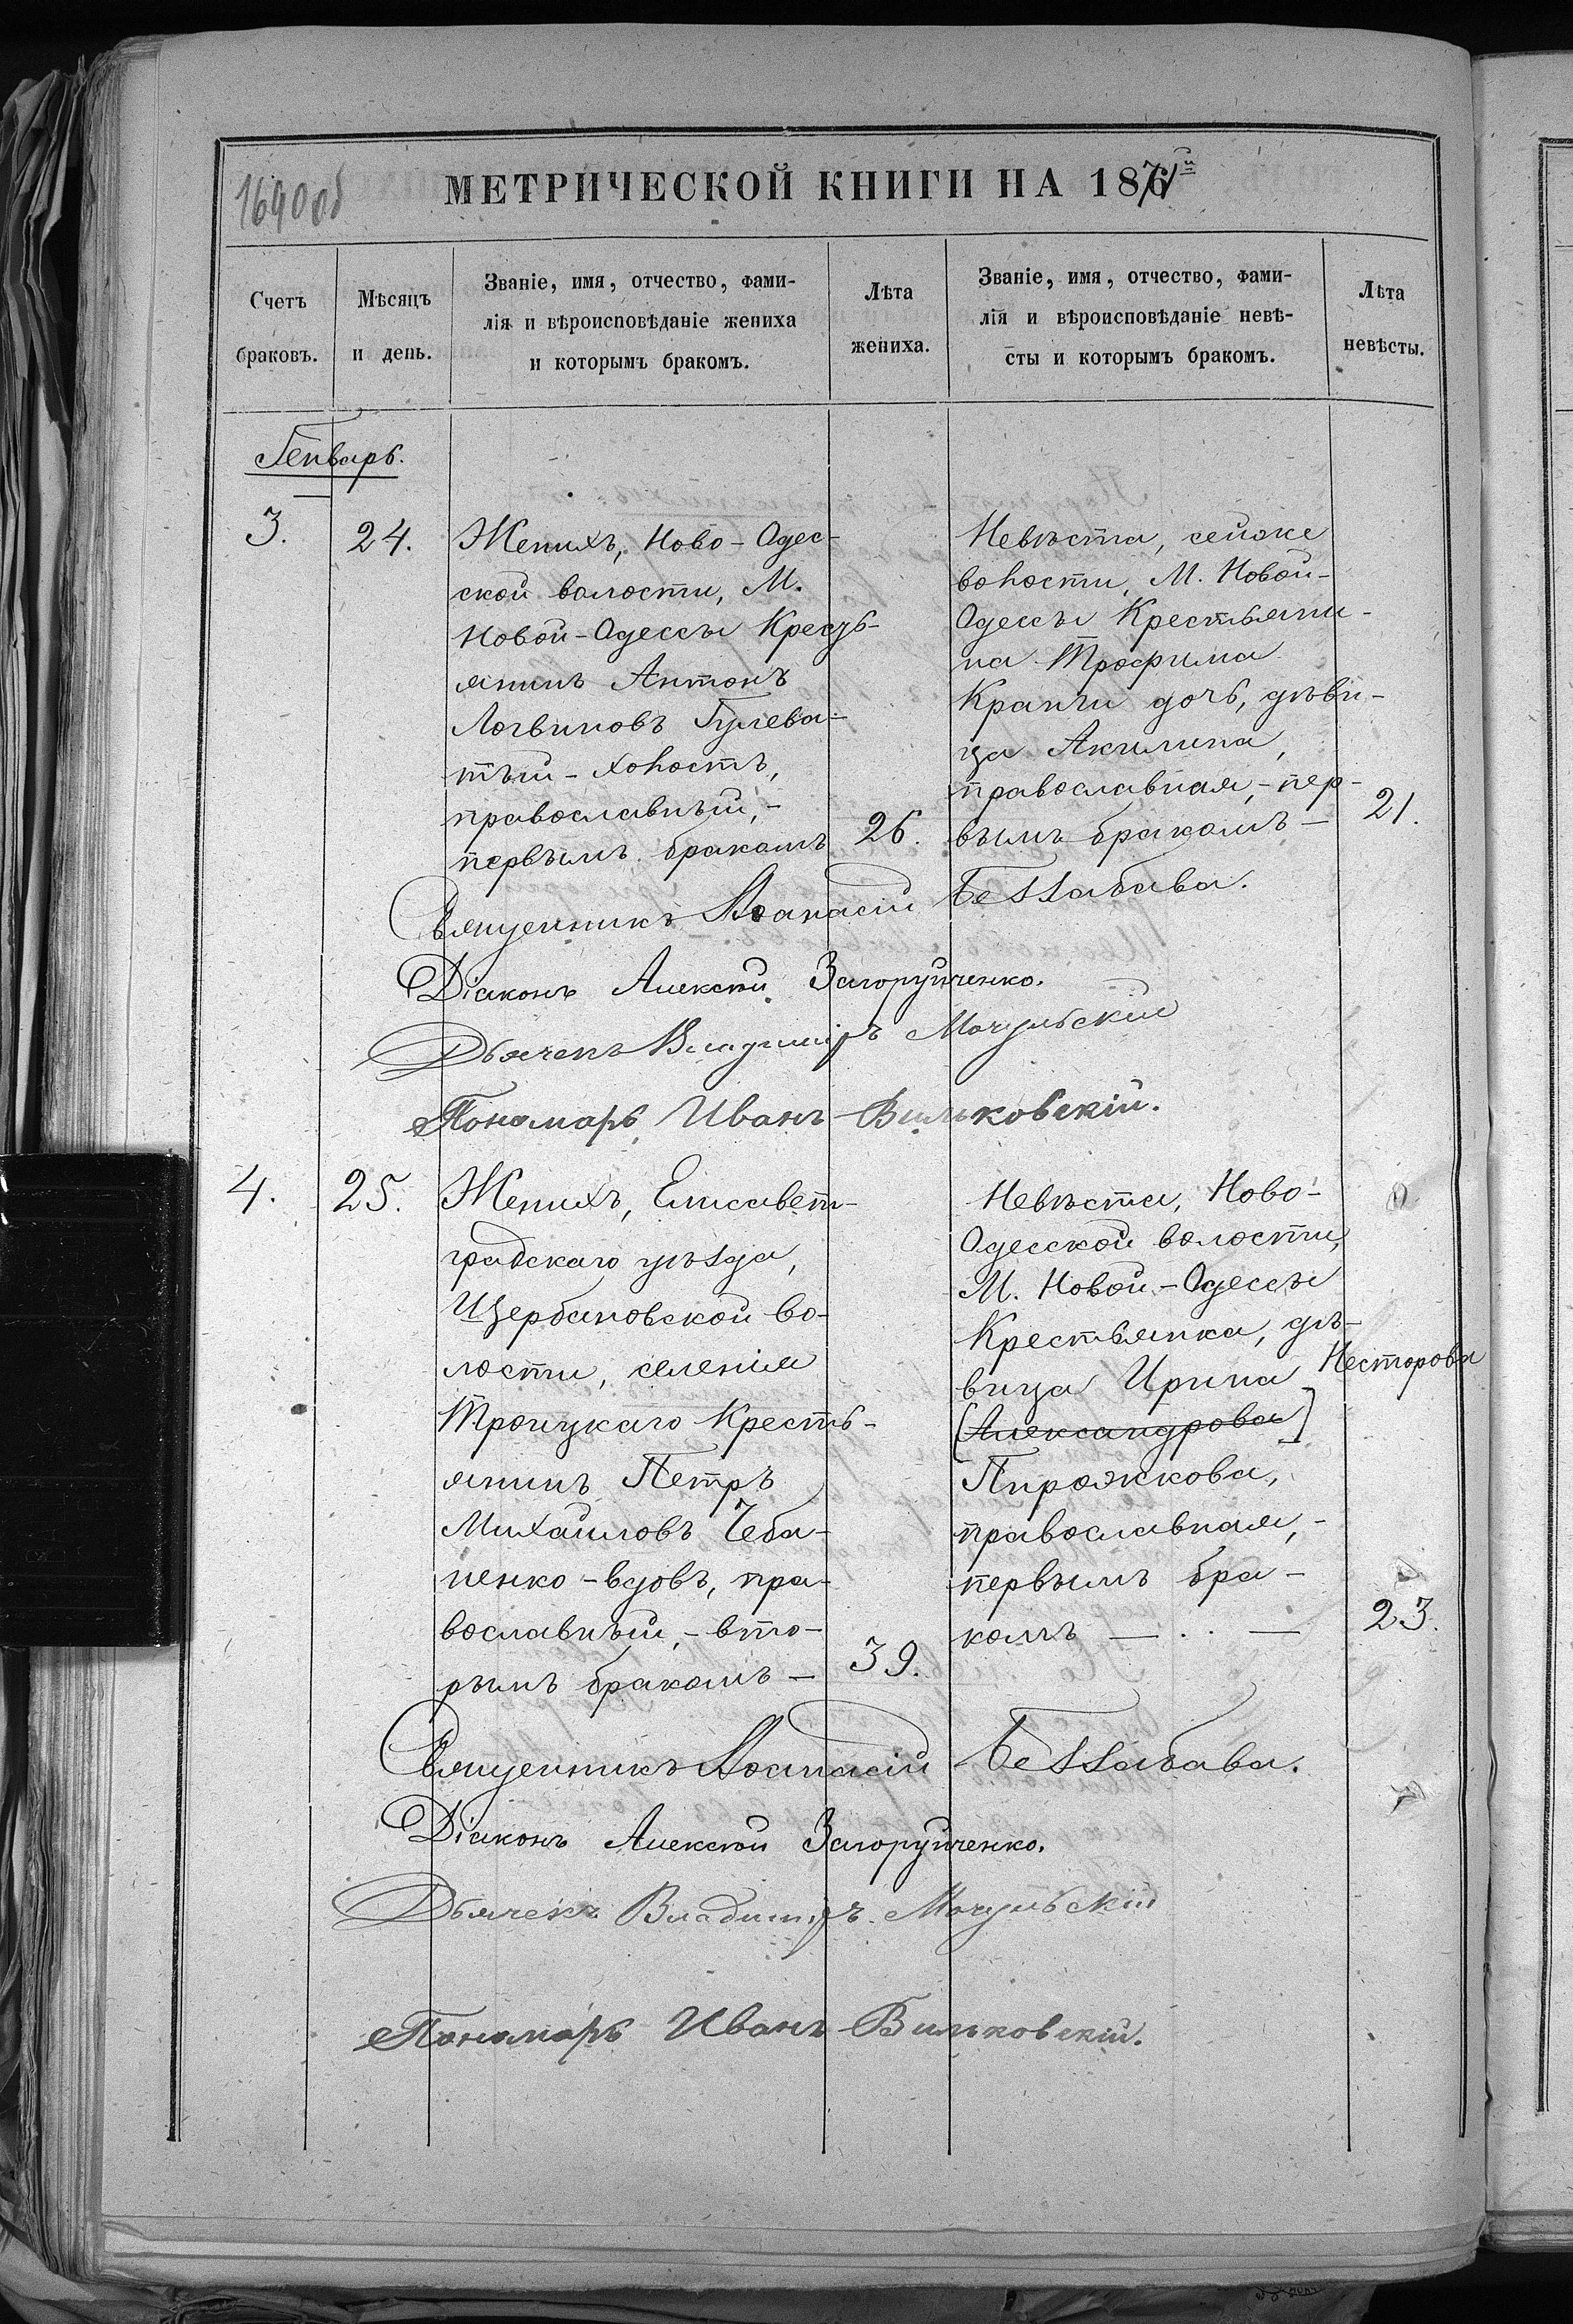 1640об
МЕТРИЧЕСКОЙ КНИГИ НА 1871й
Счетъ браковъ.
Мѣсяцъ и день.
Званіе, имя, отчество, фами-
лія и вѣроисповѣданіе жениха
и которымъ бракомъ.
Лѣта жениха.
Званіе, имя, отчество, фами-
лія и вѣроисповѣданіе невѣ-
сты и которымъ бракомъ.
Лѣта невѣсты.
Генварь.
3.
24.
Женихъ, Ново-Одес-
ской волости, М.
Новой-Одессы Кресть-
янинъ Антонъ
Логвиновъ Гулева-
тый - холостъ,
православный, -
первымъ бракомъ
26.
Невѣста, сейже
волости, М. Новой-
Одессы Крестьяни-
на Трофима
Крапти дочь, дѣви-
ца Акилина,
православная, - пер-
вымъ бракомъ —
21.
Священникъ Аѳанасій Беззабава.
Діаконъ Алексѣй Загоруйченко.
Дьячекъ Владиміръ Мочульскій
Пономарь Иванъ Вильковскій.
4.
25.
Женихъ, Елисавет-
градскаго уѣзда,
Щербановской во-
лости, селенія
Троицкаго Кресть-
янинъ Петръ
Михаиловъ Чеба-
ненко - вдовъ, пра-
вославный, - вто-
рымъ бракомъ —
39.
Невѣста, Ново-
Одесской волости,
М. Новой-Одессы
Крестьянка, дѣ-
вица Ирина Несторова
[Александрова]
Пирожкова,
православная, -
первымъ бра-
комъ — . . —
23.
Священникъ Аѳанасій Беззабава.
Діаконъ Алексѣй Загоруйченко.
Дьячекъ Владиміръ Мочульскій
Пономарь Иванъ Вильковскій.